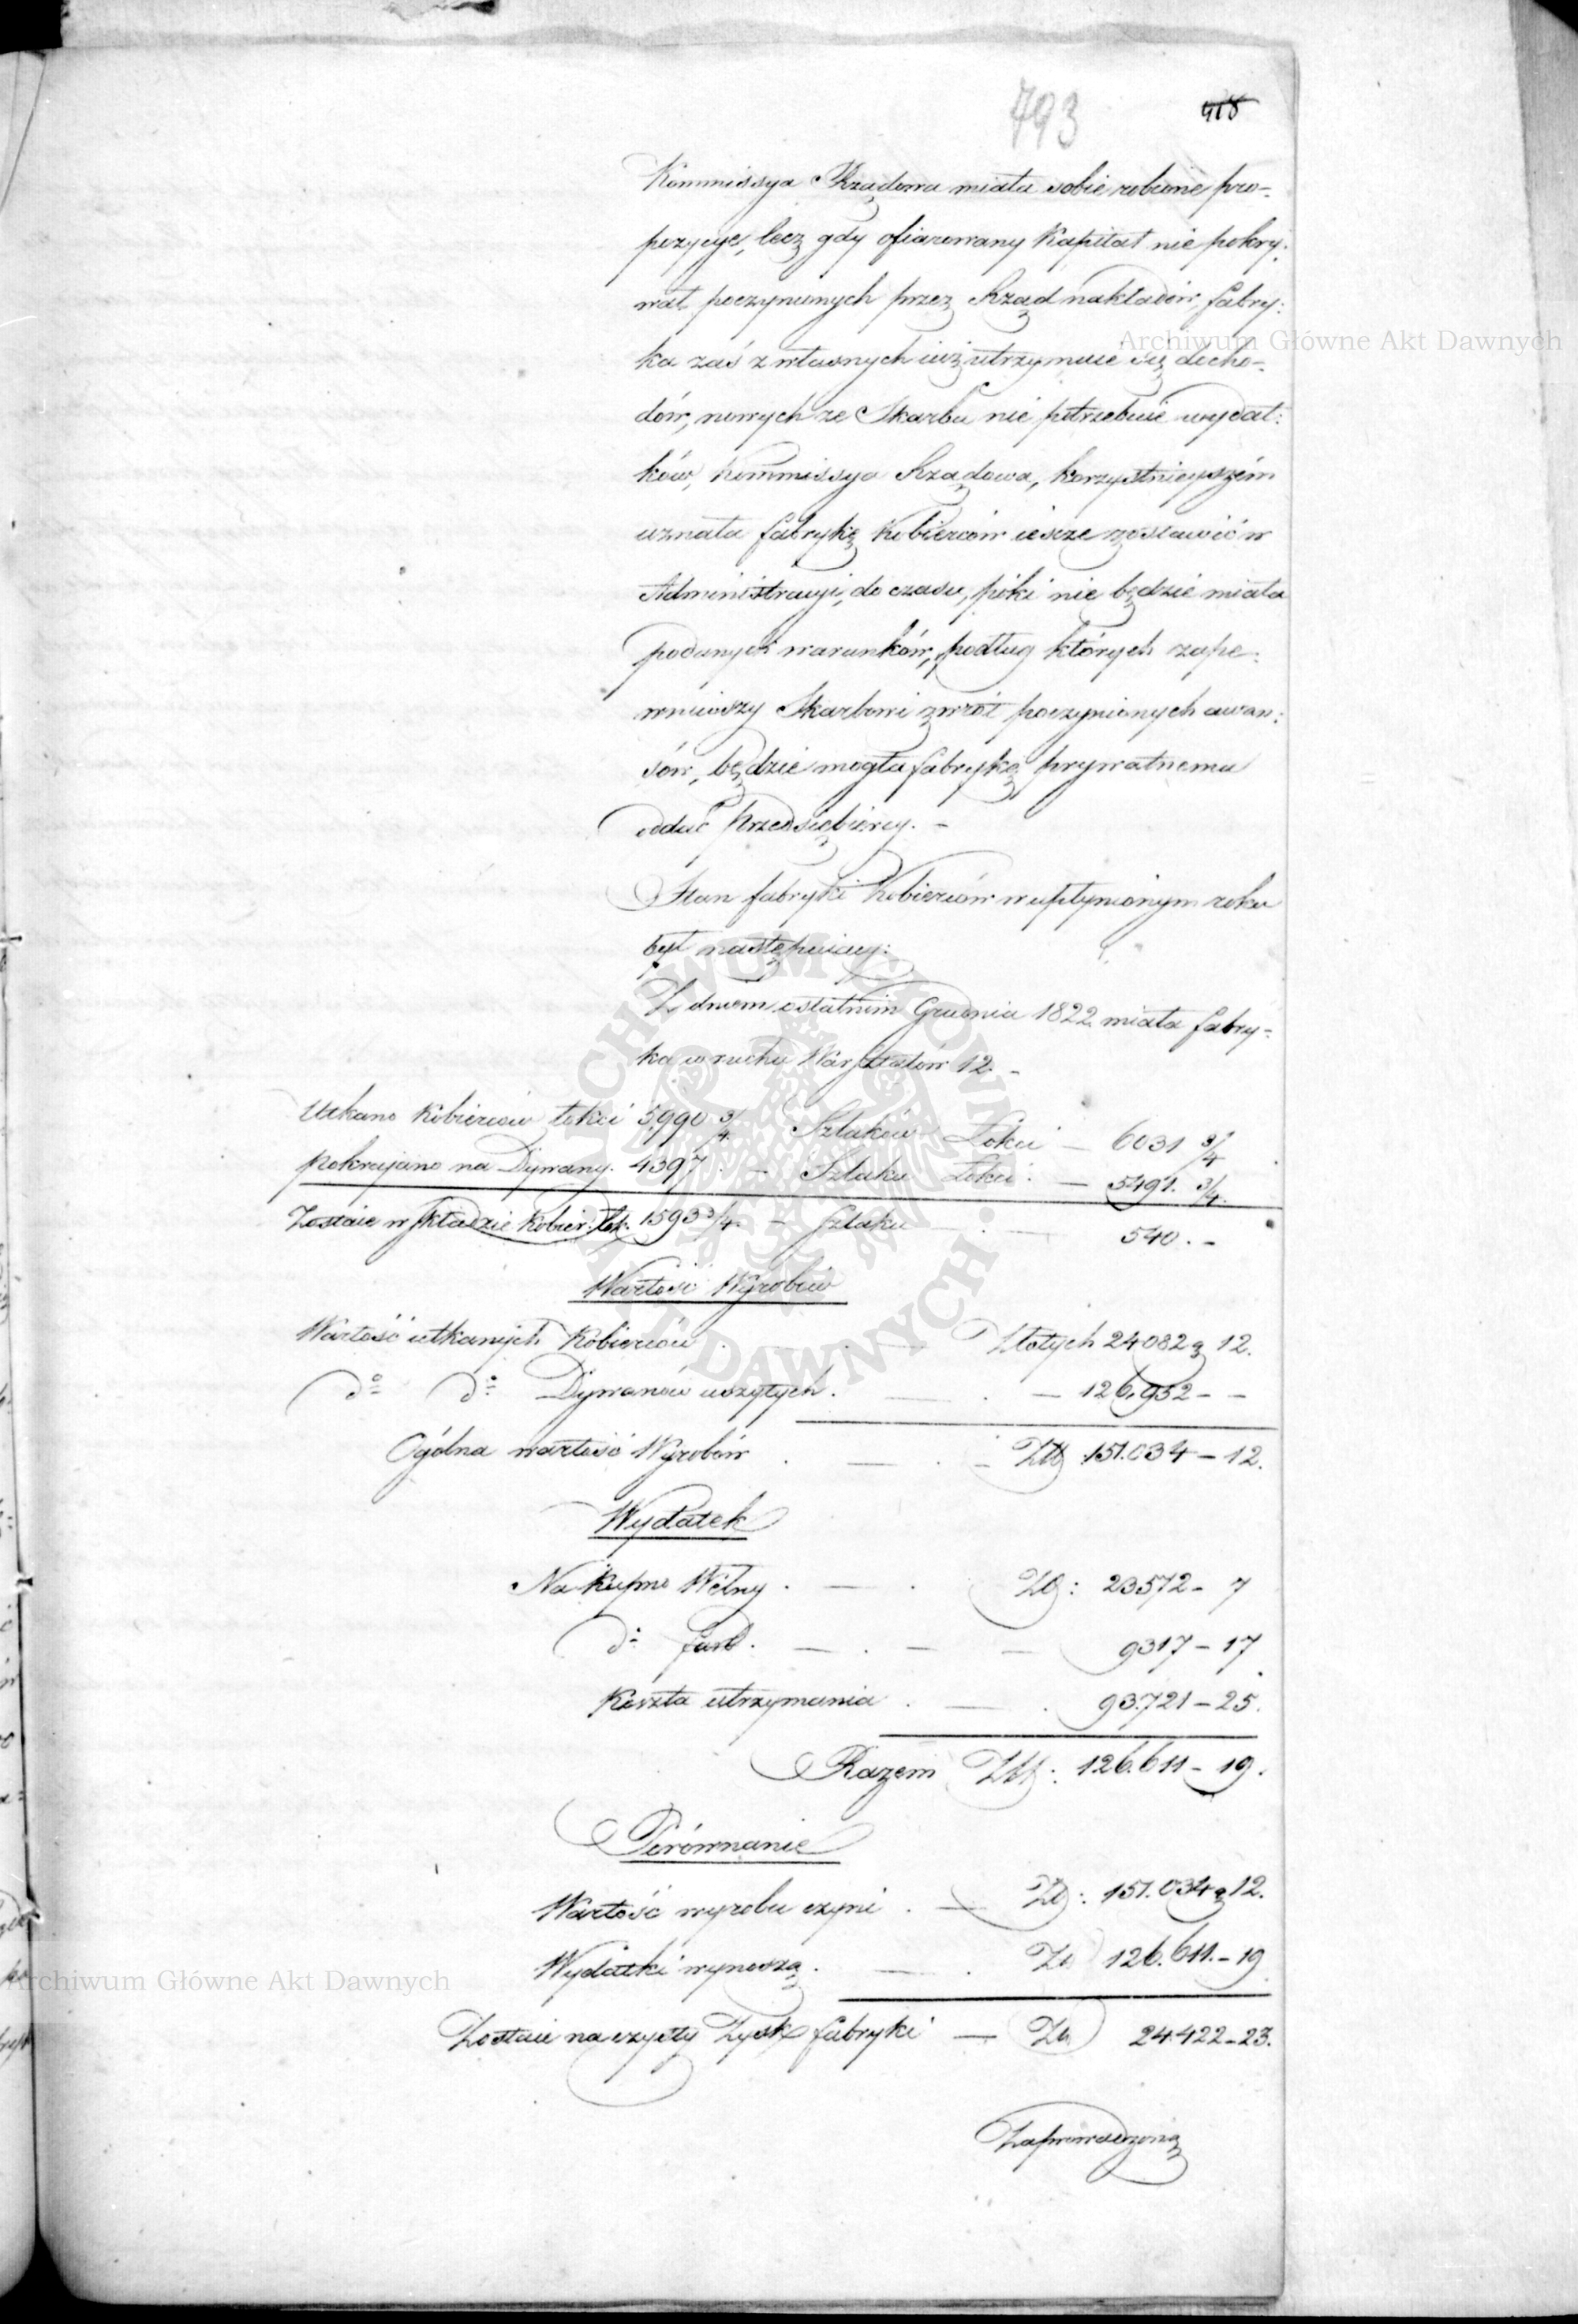 793
418
Kommissya Rządowa miała sobie robione pro-
pozycye, lecz gdy ofiarowany Kapitał nie pokry-
wał poczynionych przez Rząd nakładów, fabry-
ka zaś z własnych iuż utrzymuie się docho-
dów, nowych ze Skarbu nie potrzebuie wydat-
ków, Kommissya Rządowa, korzystnieyszém
uznała fabrykę Kobierców ieszcze zostawić w
Administracyi, do czasu, póki nie będzie miała
podanych warunków, podług których zape-
wniwszy Skarbowi zwrót poczynionych awan-
sów, będzie mogła fabrykę prywatnemu
oddać Przedsiębiercy. -
Stan fabryki Kobierców w upłynionym roku
był następuiący:
Z dniem ostatnim Grudnia 1822 miała fabry-
ka w ruchu Warsztatów 12. -
Utkano Kobierców łokci 5990 3/4. Szlaków Łokci - 6031 3/4
Pokraiano na Dywany. 4397. - Szlaku Łokci. - 5491. 3/4.
Zostaie w składzie Kobier: łok. 1593 3/4. - Szlaku - 540. -
Wartość Wyrobów
Wartość utkanych Kobierców . - Złotych 24082 g 12.
do do Dywanów uszytych. - . - 126,952 - -
Ogólna wartość Wyrobów . - . - Złt 151.034 - 12.
Wydatek
Na kupno Wełny . - . Zł: 23572 - 7
do farb. - . - - 9317 - 17
Koszta utrzymania . - . 93.721 - 25.
Razem Złt: 126.611 - 19.
Porównanie
Wartość wyrobu czyni . - Zł: 151.034 g 12.
Wydatki wynoszą . - . Zł 126.611. - 19
Zostaie na czysty Zysk fabryki - Zł 24.422 - 23.
Zaprowadzoną
Archiwum Główne Akt Dawnych
Archiwum Główne Akt Dawnych
ARCHIWUM GŁÓWNE AKT DAWNYCH